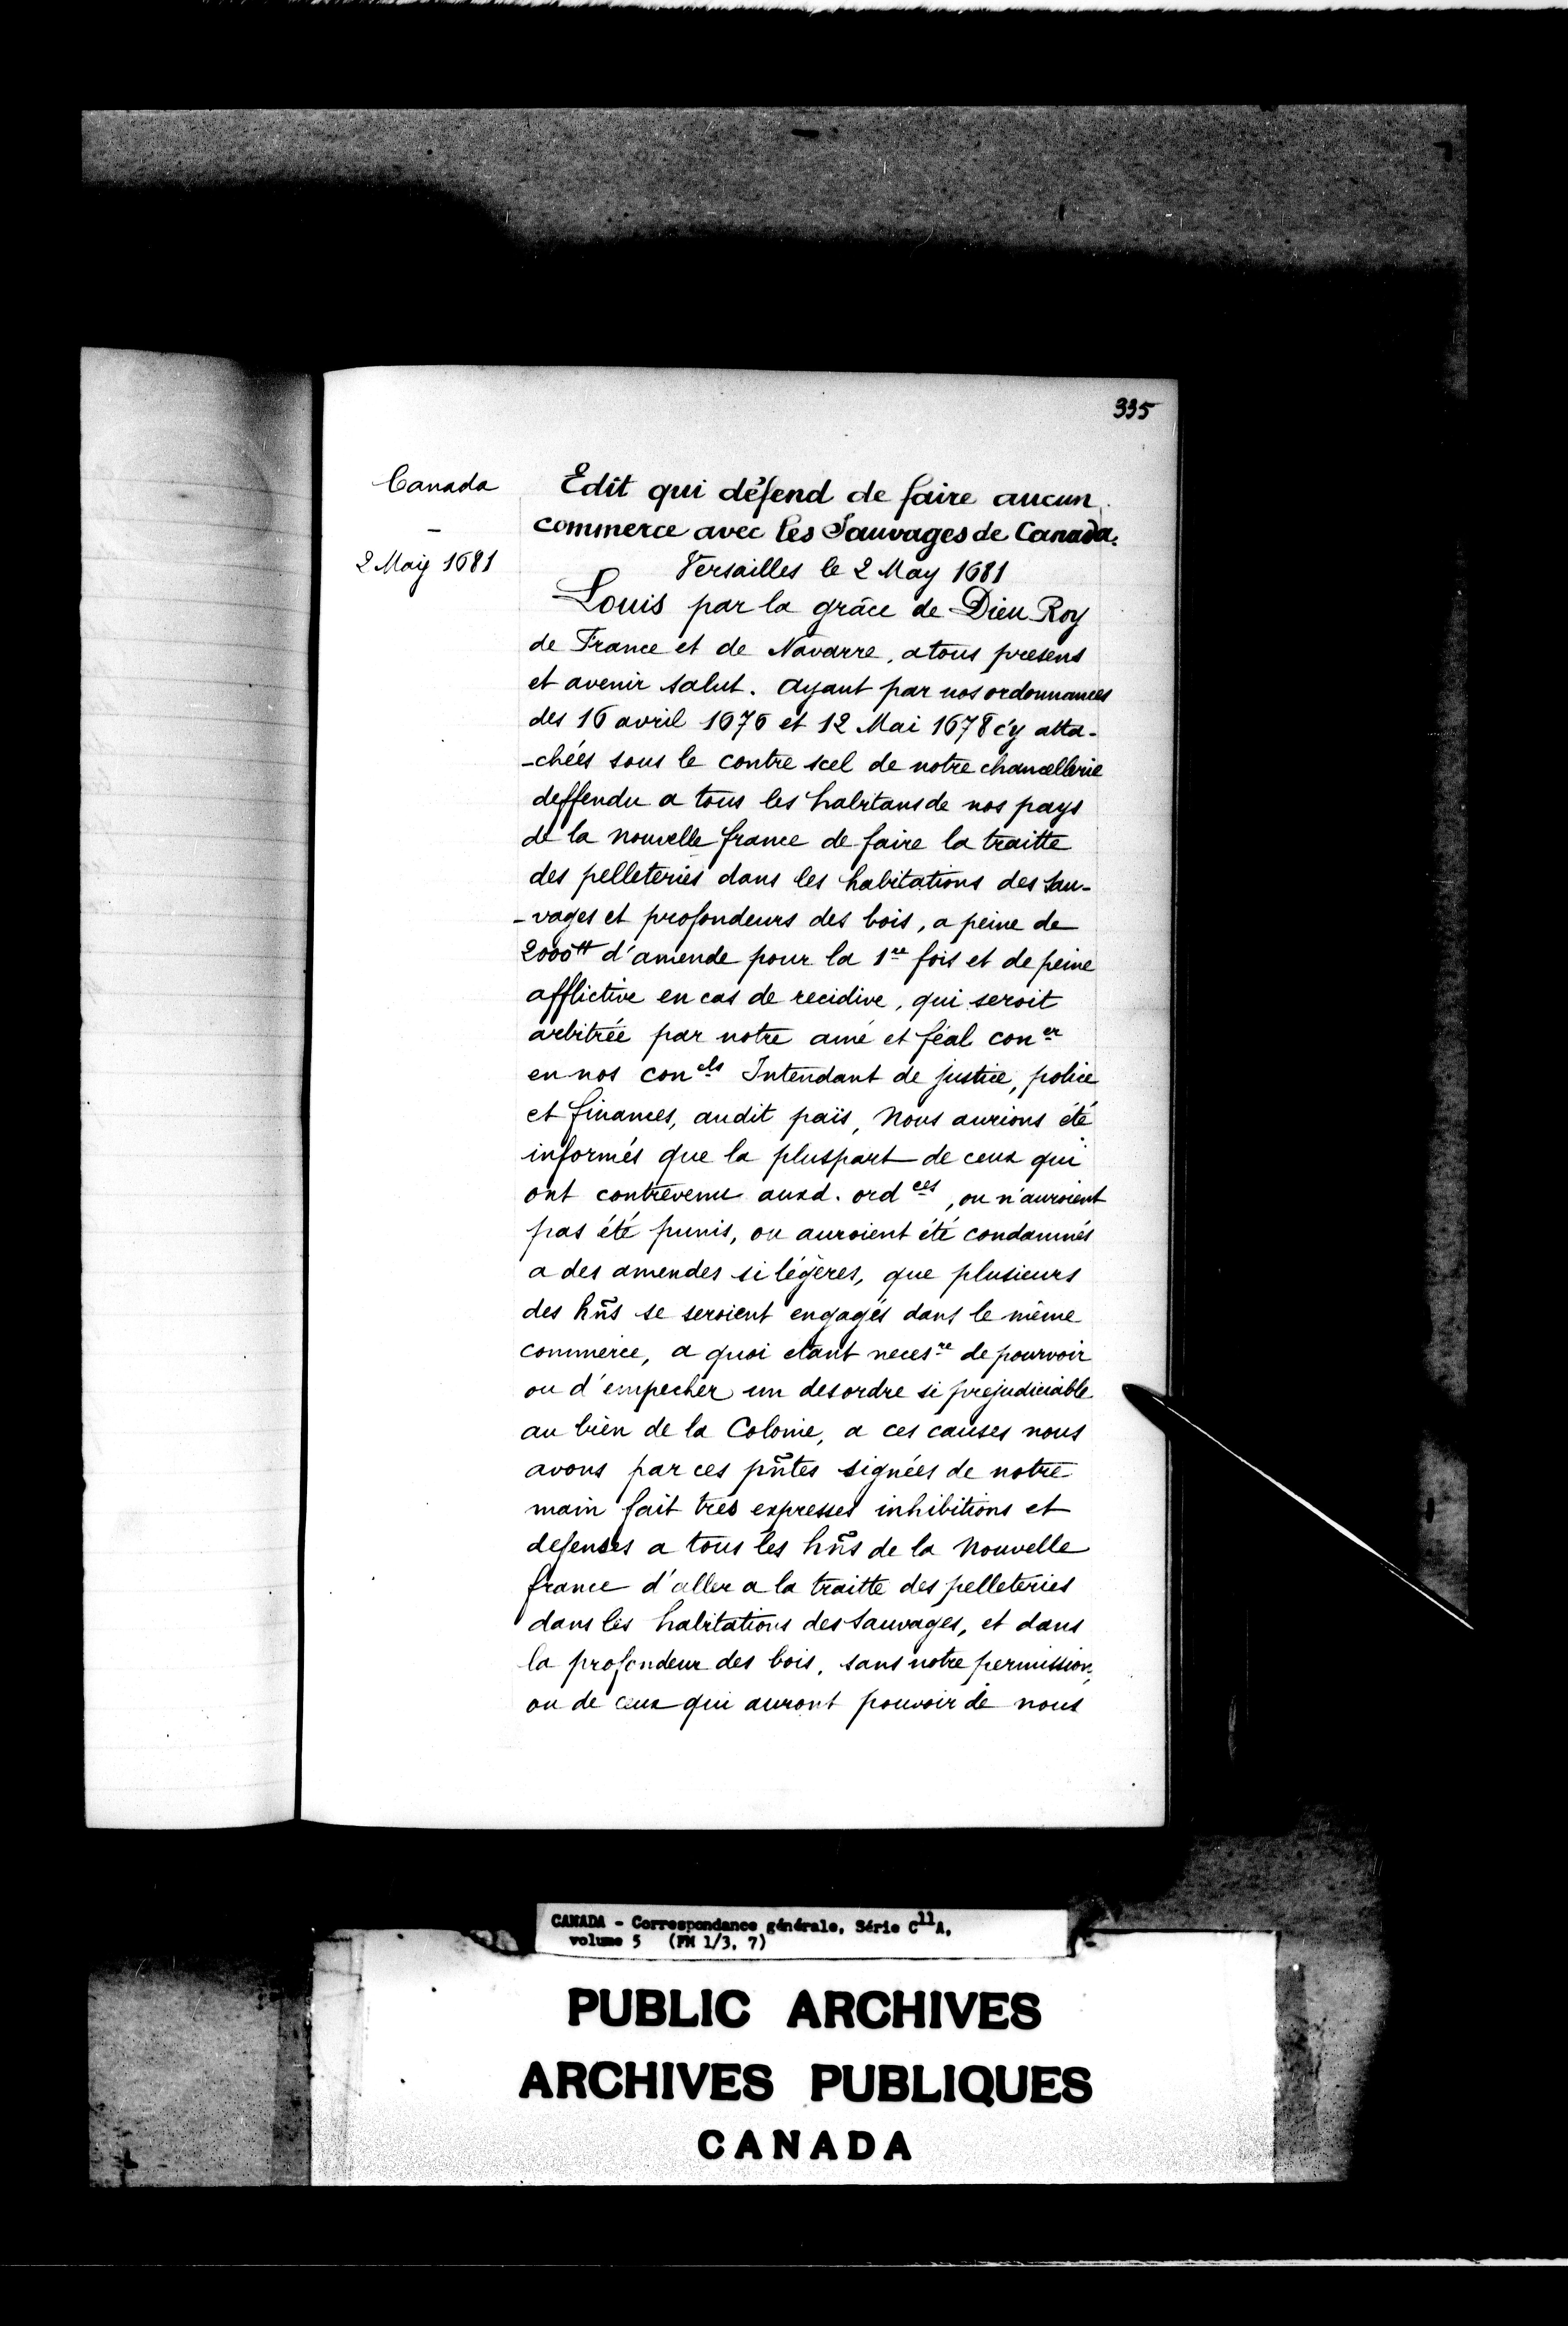 335
Canada
–
2 May 1681
Edit qui défend de faire aucun
commerce avec les Sauvages de Canada.
Versailles le 2 May 1681
Louis par la grâce de Dieu Roy
de France et de Navarre, a tous presens
et avenir salut. Ayant par nos ordonnances
des 16 avril 1676 et 12 Mai 1678 c'y atta-
-chées sous le contre scel de notre chancellerie
deffendu a tous les habitans de nos pays
de la nouvelle france de faire la traitte
des pelleteries dans les habitations des sau-
-vages et profondeurs des bois, a peine de
2000tt d'amende pour la 1re fois et de peine
afflictive en cas de recidive, qui seroit
arbitrée par notre amé et féal coner
en nos conels Intendant de justice, police
et finances, audit païs, Nous aurions été
informés que la pluspart de ceux qui
ont contrevenu auxd. ordces, ou n'auroient
pas été punis, ou auroient été condamnés
a des amendes si légères, que plusieurs
des hñs se seroient engagés dans le même
commerce, a quoi etant necesre de pourvoir
ou d'empecher un desordre si prejudiciable
au bien de la Colonie, a ces causes nous
avons par ces pñtes signées de notre
main fait très expresses inhibitions et
defenses a tous les hñs de la Nouvelle
france d'aller a la traitte des pelleteries
dans les habitations des sauvages, et dans
la profondeur des bois, sans notre permission,
ou de ceux qui auront pouvoir de nous
CANADA - Correspondance générale, Série C11A,
volume 5 (FM 1/3, 7)
PUBLIC ARCHIVES
ARCHIVES PUBLIQUES
CANADA